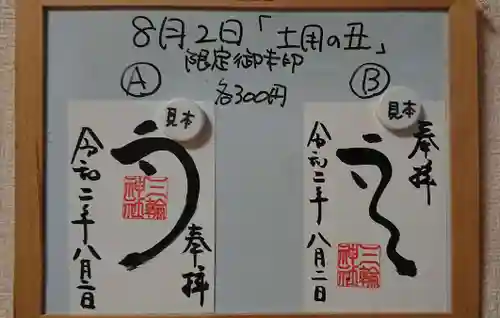 8月2日「土用の丑」
限定御朱印
各300円
Ⓐ
見本
う
令和二年八月二日
三輪
神社
奉拝
Ⓑ
見本
奉拝
令和二年八月二日
三輪
神社